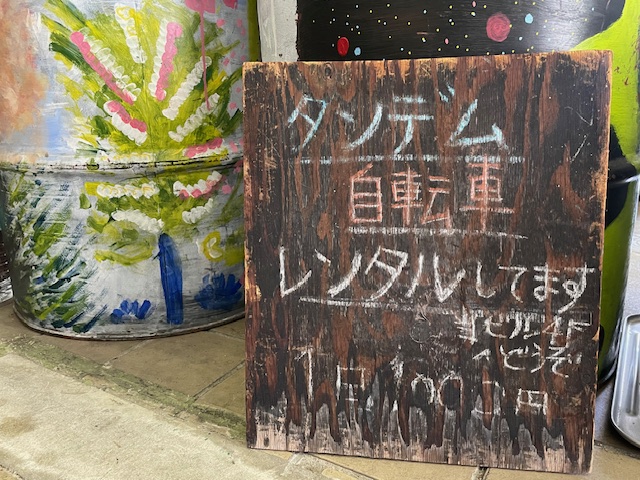 タンデム
自転車
レンタルしてます
ビル4F
へどうぞ
1日1000円